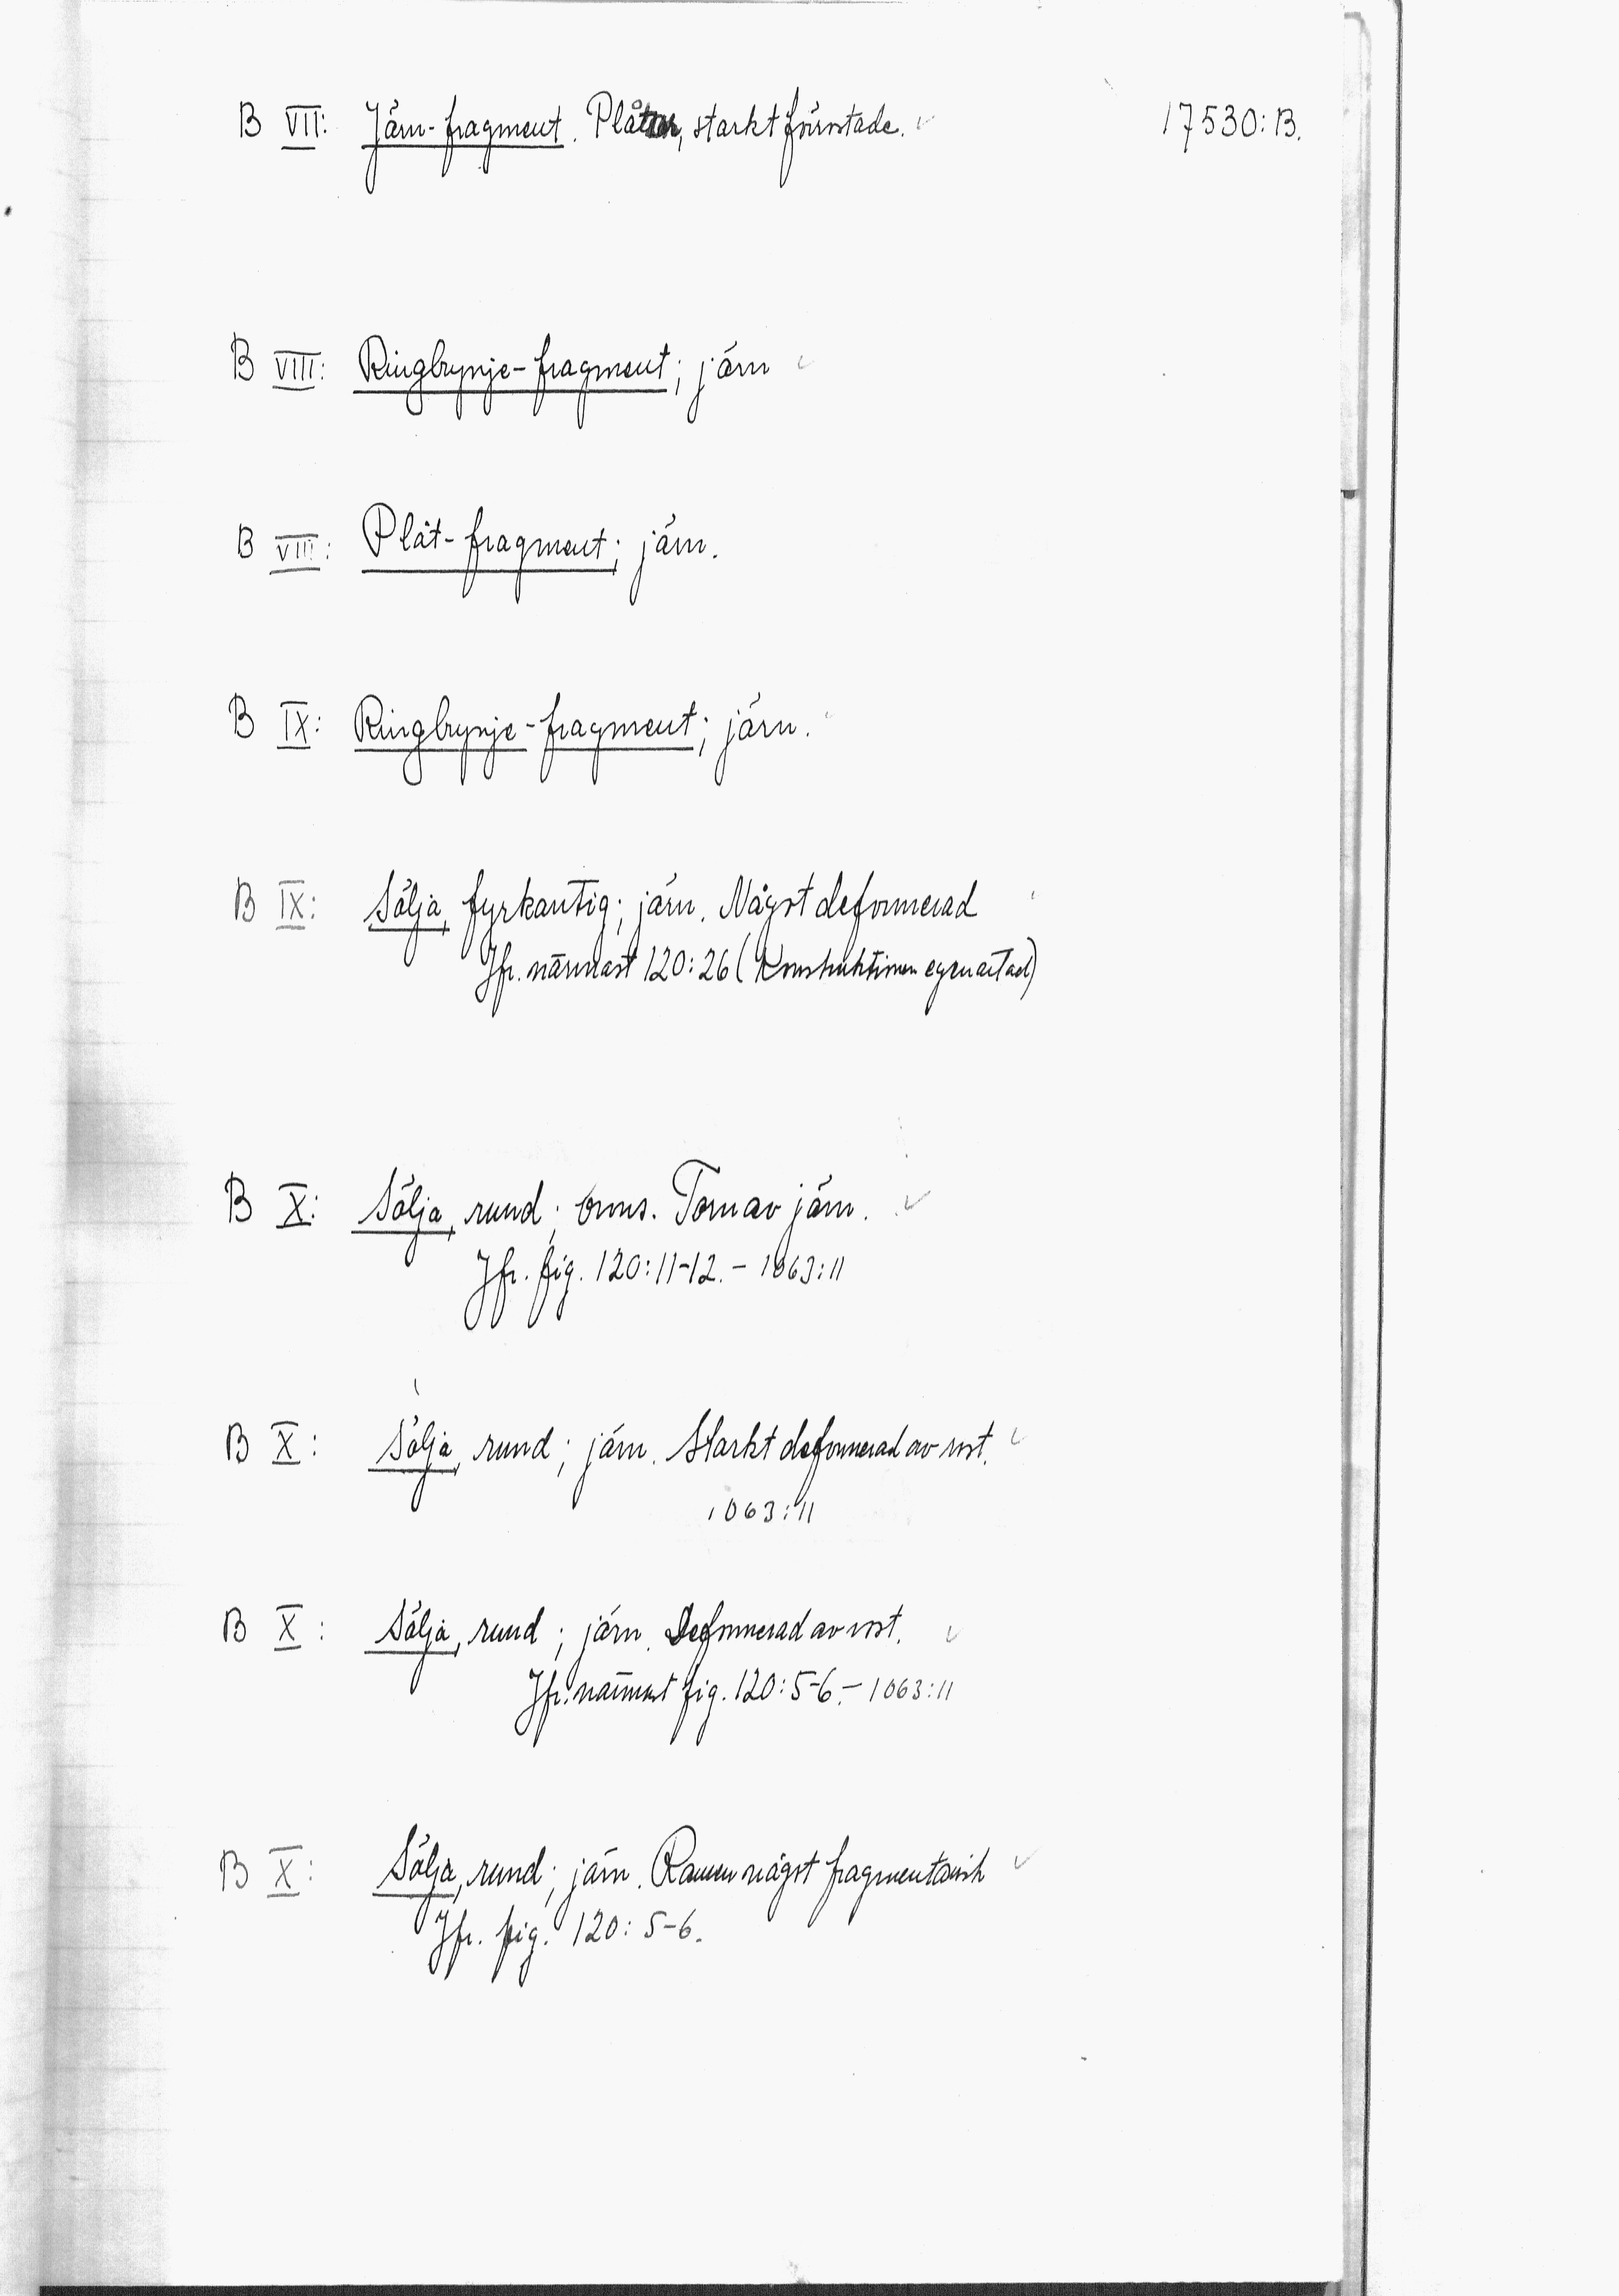 17530:B.
B VII: Järn-fragment. Plåtar, starkt förrostade.
B VIII: Ringbrynje-fragment; järn
B VIII: Plåt-fragment; järn.
B IX: Ringbrynje-fragment; järn.
B IX: Sölja, fyrkantig; järn. Något deformerad
Jfr. närmast 120:26 (Konstruktionen egenartad)
B X: Sölja, rund; brons. Torn av järn.
Jfr. fig. 120:11-12. - 1063:11
B X: Sölja, rund; järn. Starkt deformerad av rost.
1063:11
B X: Sölja, rund; järn. Deformerad av rost.
Jfr. närmast fig. 120:5-6. - 1063:11
B X: Sölja, rund; järn. Ramen något fragmentarisk
Jfr. fig. 120:5-6.